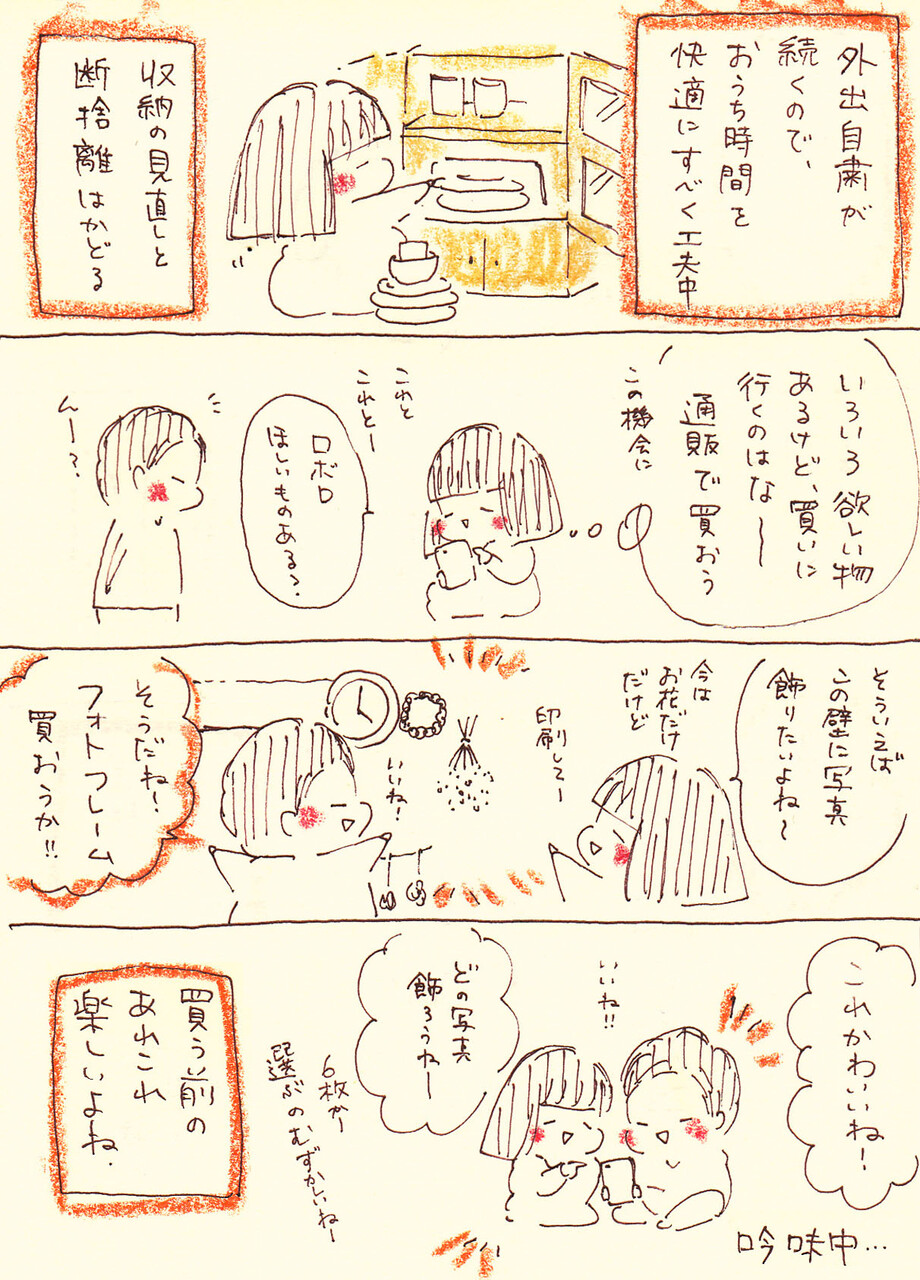 外出自粛が
続くので、
おうち時間を
快適にすべく工夫中
収納の見直しと
断捨離はかどる
いろいろ欲しい物
あるけど、買いに
行くのはな〜
この機会に
通販で買おう
これと
これとー
ロボロ
ほしいものある?
んー?
そういえば
この壁に写真
飾りたいよね〜
今は
お花だけ
だけど
印刷してー
いいね!
そうだね!
フォトフレーム
買おうか!!
これかわいいね!
いいね!!
どの写真
飾ろうねー
6枚かー
選ぶのむずかしいねー
買う前の
あれこれ
楽しいよね.
吟味中…